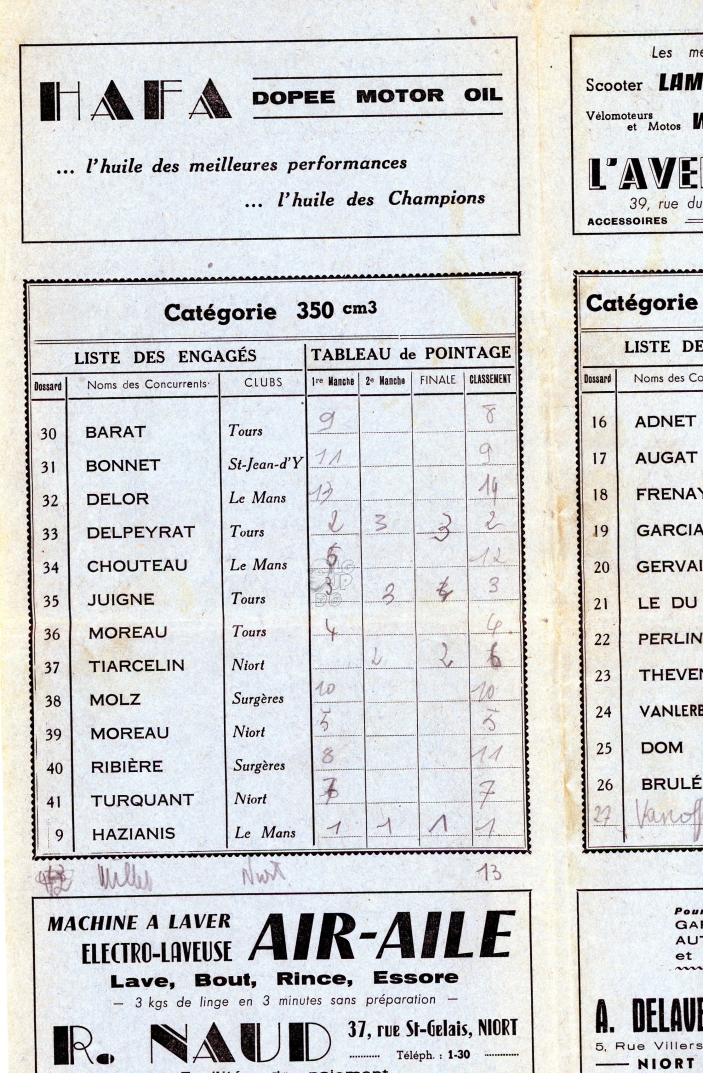 HAFA DOPEE MOTOR OIL
... l'huile des meilleures performances
... l'huile des Champions
Les
Scooter
Vélomoteurs
et Motos
39, rue du
ACCESSOIRES
Catégorie 350 cm3
LISTE DES ENGAGÉS TABLEAU de POINTAGE
Dossard Noms des Concurrents CLUBS 1re Manche 2e Manche FINALE CLASSEMENT
30 BARAT Tours 9 8
31 BONNET St-Jean-d'Y 11 9
32 DELOR Le Mans 13 14
33 DELPEYRAT Tours 2 3 3 2
34 CHOUTEAU Le Mans 6 12
35 JUIGNE Tours 3 3
36 MOREAU Tours 4 4
37 TIARCELIN Niort 2 2 6
38 MOLZ Surgères 10 10
39 MOREAU Niort 5 5
40 RIBIÈRE Surgères 8 11
41 TURQUANT Niort 7 7
9 HAZIANIS Le Mans 1 1 1 1
Niort 13
Catégorie
LISTE
Dossard Noms des
16 ADNET
17 AUGAT
18 FRENAY
19 GARCIA
20
21 LE DU
22
23
24
25 DOM
26 BRULÉ
27
MACHINE A LAVER
ELECTRO-LAVEUSE AIR-AILE
Lave, Bout, Rince, Essore
— 3 kgs de linge en 3 minutes sans préparation —
R. NAUD 37, rue St-Gelais, NIORT
Téléph. : 1-30
Pour
et
A.
5, Rue Villers
NIORT